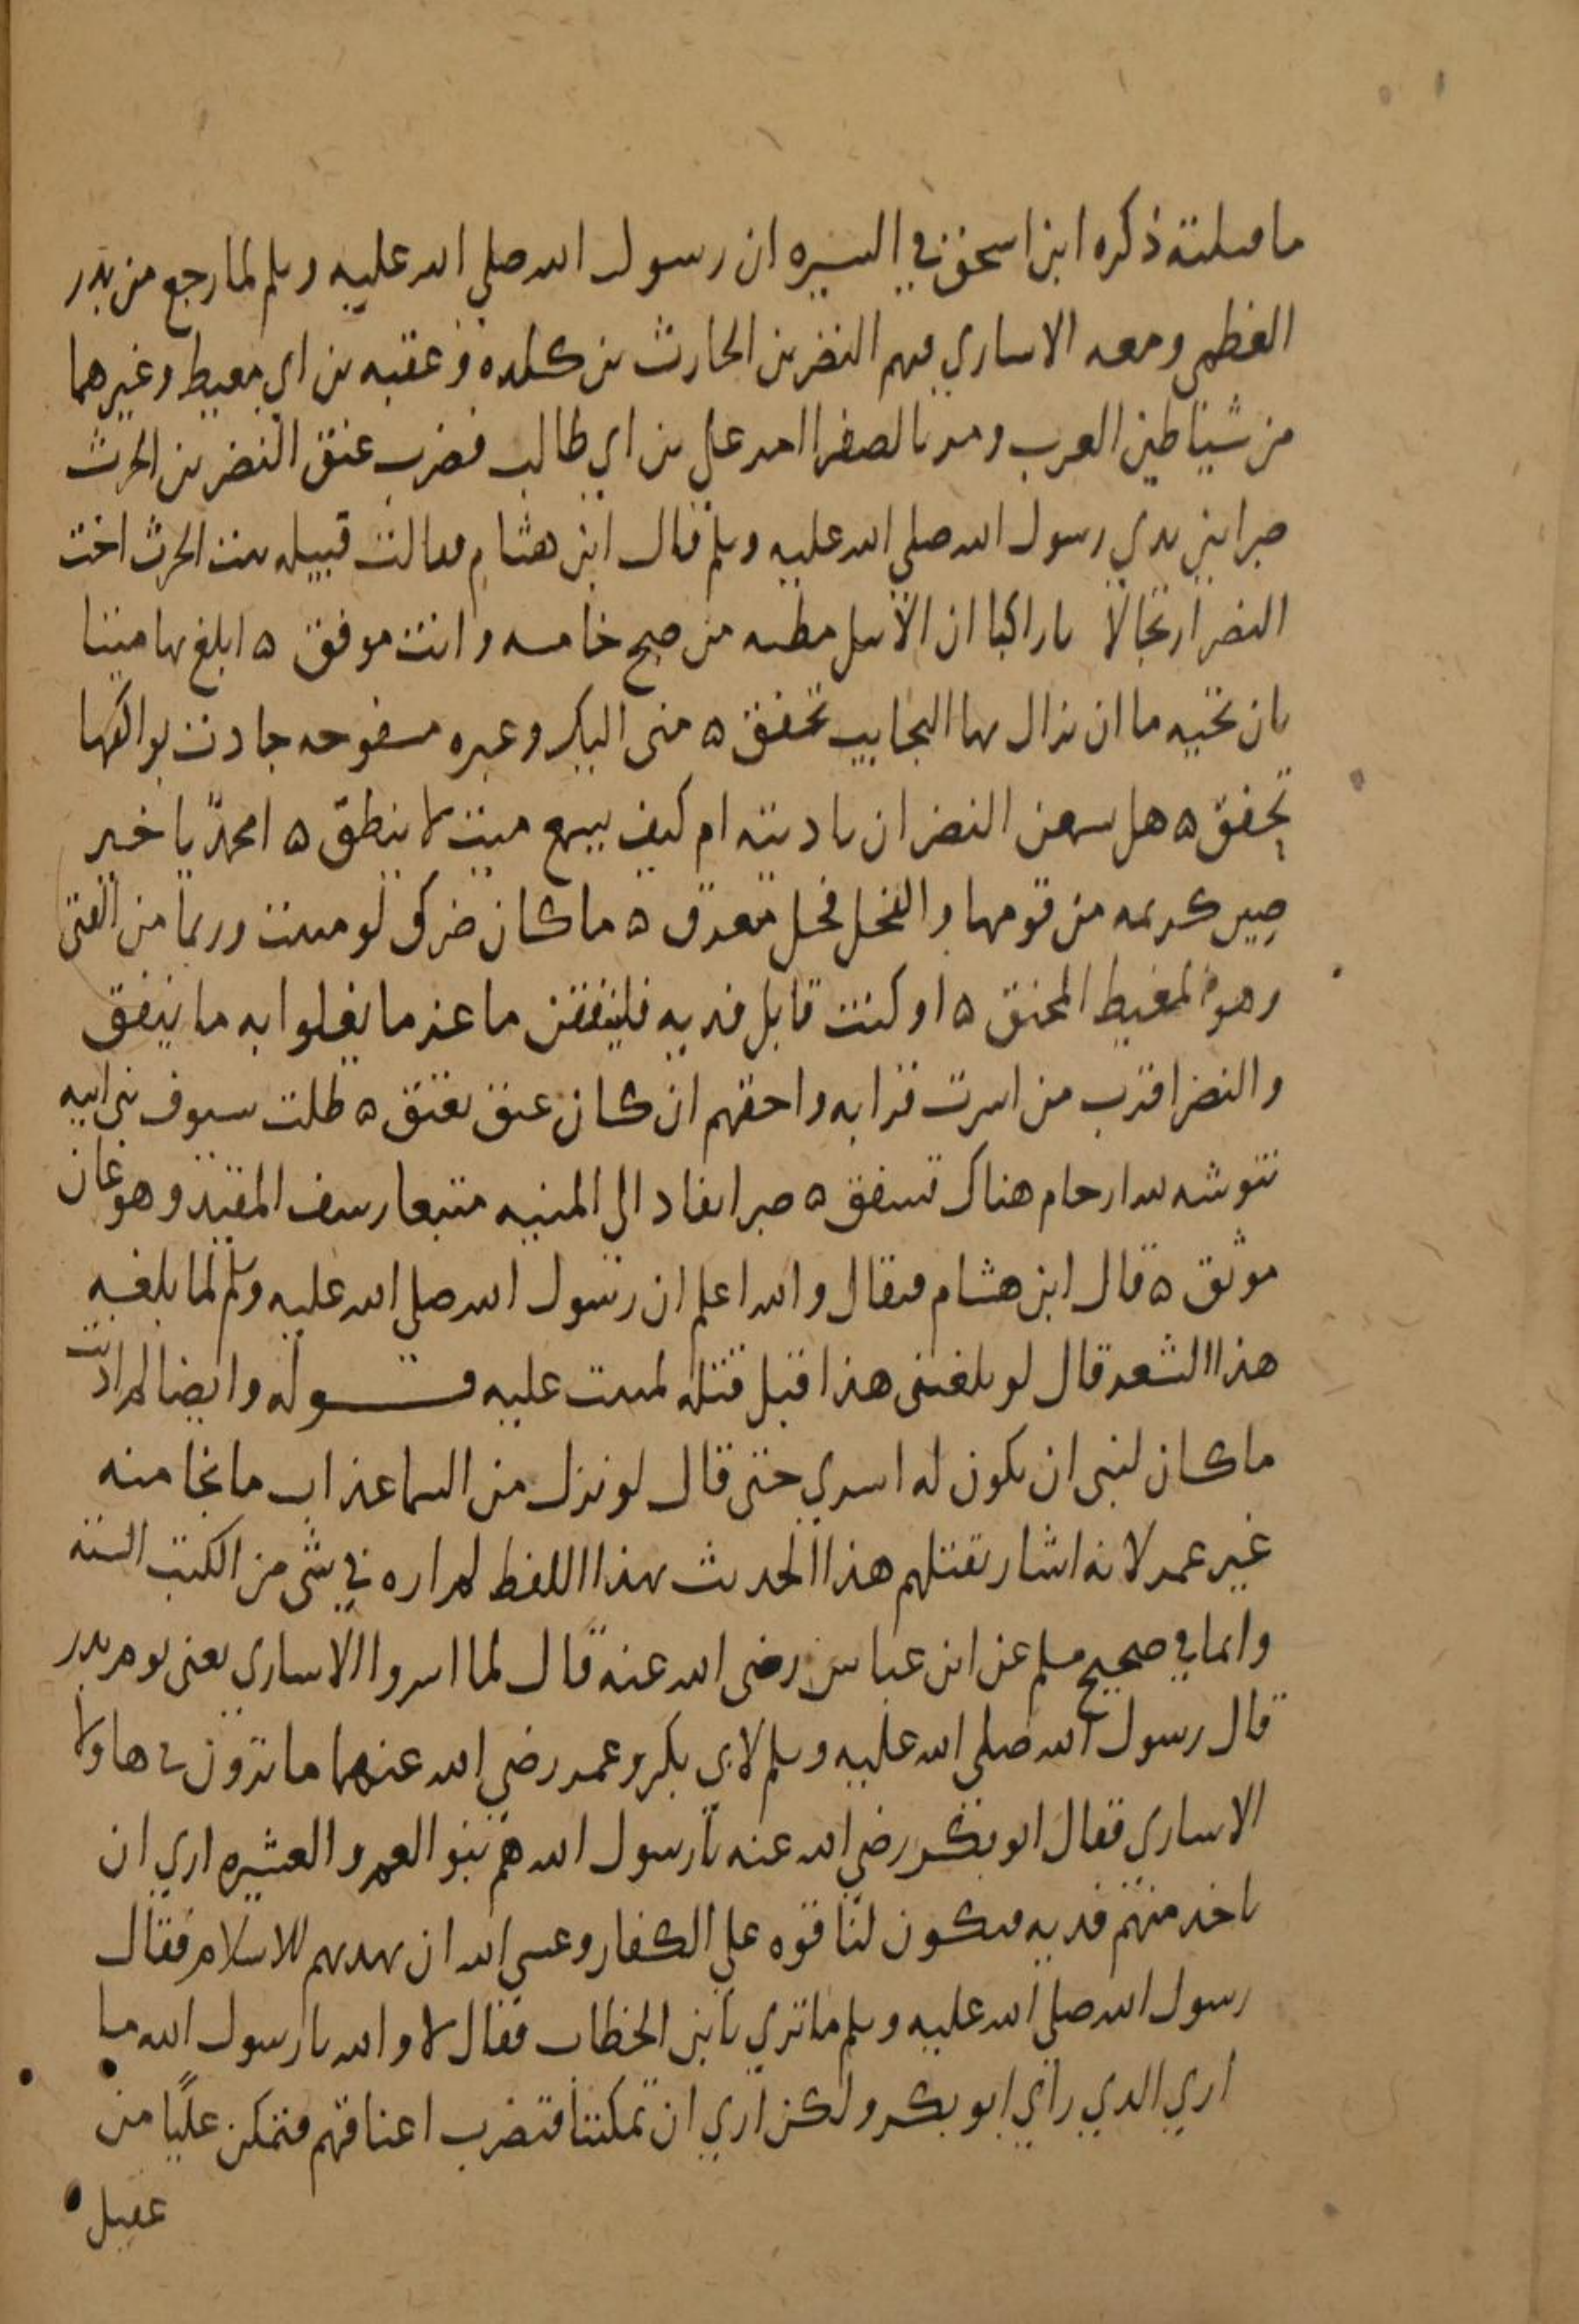 ما قتلته ذكره ابن اسحق في السيره ان رسول الله صلي الله عليه وسلم لما رجع من بدر
العظمى ومعه الاساري فيهم النضر بن الحارث بن كلده وعقبه بن ابي معيط وغيرهما
من شياطين العرب ومر بالصفرا امر علي بن ابي طالب فضرب عنق النضر بن الحرث
صبرا بين يدي رسول الله صلي الله عليه وسلم قال ابن هشام فقالت قبيله بنت الحرث اخت
النضر ارتجالا يا راكبا ان الاثيل مظنه من صبح خامسه وانت موفق ه ابلغ بها ميتا
بان تحيه ما ان تزال بها النجايب تخفق ه منى اليك وعبره مسفوحه جادت بواكفها
تخفق ه هل يسمعن النضر ان ناديته ام كيف يسمع ميت لا ينطق ه امحمد يا خير
كريمه من قومها والفحل فحل معرق ه ما كان ضرك لو مننت وربما من الفتى
وهو المغيط المحنق ه او كنت قابل فديه فلينفقن ما عز ما يغلوا به ما ينفق
والنضر اقرب من اسرت قرابه واحقهم ان كان عتق يعتق ه ظلت سيوف بني ابيه
تنوشه لله ارحام هناك تشقق ه صبرا يقاد الى المنيه متعبا رسف المقيد وهو عان
موثق ه قال ابن هشام فيقال والله اعلم ان رسول الله صلي الله عليه وسلم لما بلغه
هذا الشعر قال لو بلغنى هذا قبل قتله لمننت عليه قوله وايضا لما نزلت
ما كان لنبى ان يكون له اسري حتى قال لو نزل من السما عذاب ما نجا منه
غير عمر لانه اشار بقتلهم هذا الحديث بهذا اللفظ لم اره في شى من الكتب الستة
وانما في صحيح مسلم عن ابن عباس رضى الله عنه قال لما اسروا الاساري يعنى يوم بدر
قال رسول الله صلي الله عليه وسلم لابي بكر وعمر رضي الله عنهما ما ترون في هاولا
الاساري فقال ابو بكر رضي الله عنه يا رسول الله هم بنو العم والعشيره اري ان
ناخذ منهم فديه فتكون لنا قوه علي الكفار وعسي الله ان يهديهم للاسلام فقال
رسول الله صلي الله عليه وسلم ما تري يا بن الخطاب فقال لا والله يا رسول الله ما
اري الذي راي ابو بكر ولكن اري ان تمكننا فنضرب اعناقهم فتمكن عليا من
عقيل